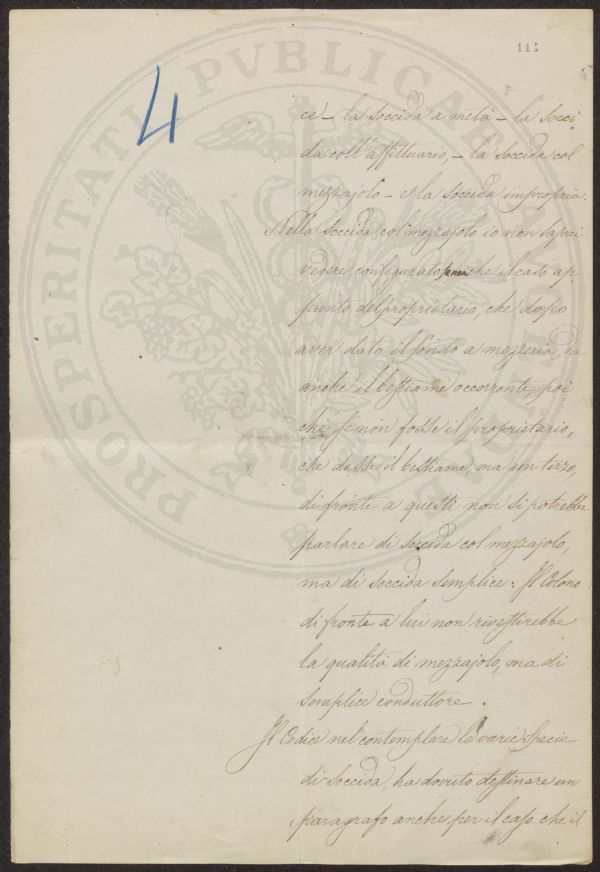 111
4
ce - la soccida a metà - la socci
da coll'affittuario, - la soccida col
mezzajolo - e la soccida impropria.
Nella soccida col mezzajolo io non saprei
vedere configurato che il caso ap
punto del proprietario, che dopo
aver dato il fondo a mezzeria, dà
anche il bestiame occorrente, poi
chè se non fosse il proprietario,
che dasse il bestiame, ma un terzo,
di fronte a questi non si potrebbe
parlare di soccida col mezzajolo,
ma di soccida semplice: Il Colono
di fronte a lui non rivestirebbe
la qualità di mezzajolo, ma di
semplice conduttore.
Il Codice nel contemplare le varie specie
di soccida, ha dovuto destinare un
paragrafo anche per il caso che il
PROSPERITATI PVBLICAE